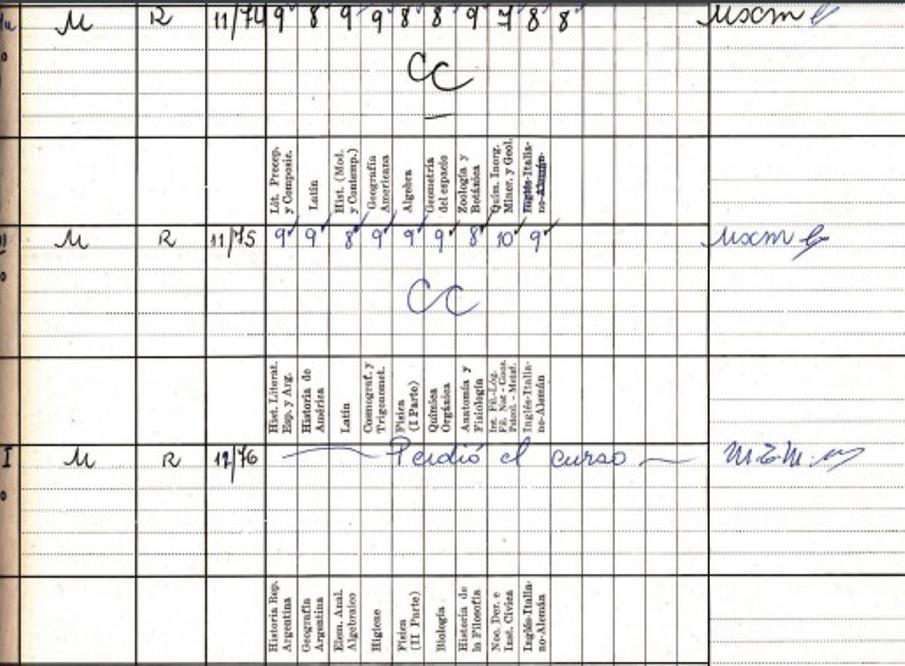 M R 11/74 9 8 9 9 8 8 9 7 8 8
CC
Lit. Precep. y Composic.
Latín
Hist. (Mod. y Contemp.)
Geografía Americana
Algebra
Geometría del espacio
Zoología y Botánica
Quím. Inorg. Miner. y Geol.
Inglés-Italia-no-Alemán
M R 11/75 9 9 8 9 9 9 8 10 9
CC
Hist. Literat. Esp. y Arg.
Historia de América
Latín
Cosmograf. y Trigonomet.
Física (I Parte)
Química Orgánica
Anatomía y Fisiología
Int. Fil.-Lóg. Fil. Nat - Gnos. Psicol. - Metaf.
Inglés-Italia-no-Alemán
I M R 12/76 Perdió el curso
Historia Rep. Argentina
Geografía Argentina
Elem. Anal. Algebraico
Higiene
Física (II Parte)
Biología
Historia de la Filosofía
Noc. Der. e Inst. Cívica
Inglés-Italia-no-Alemán